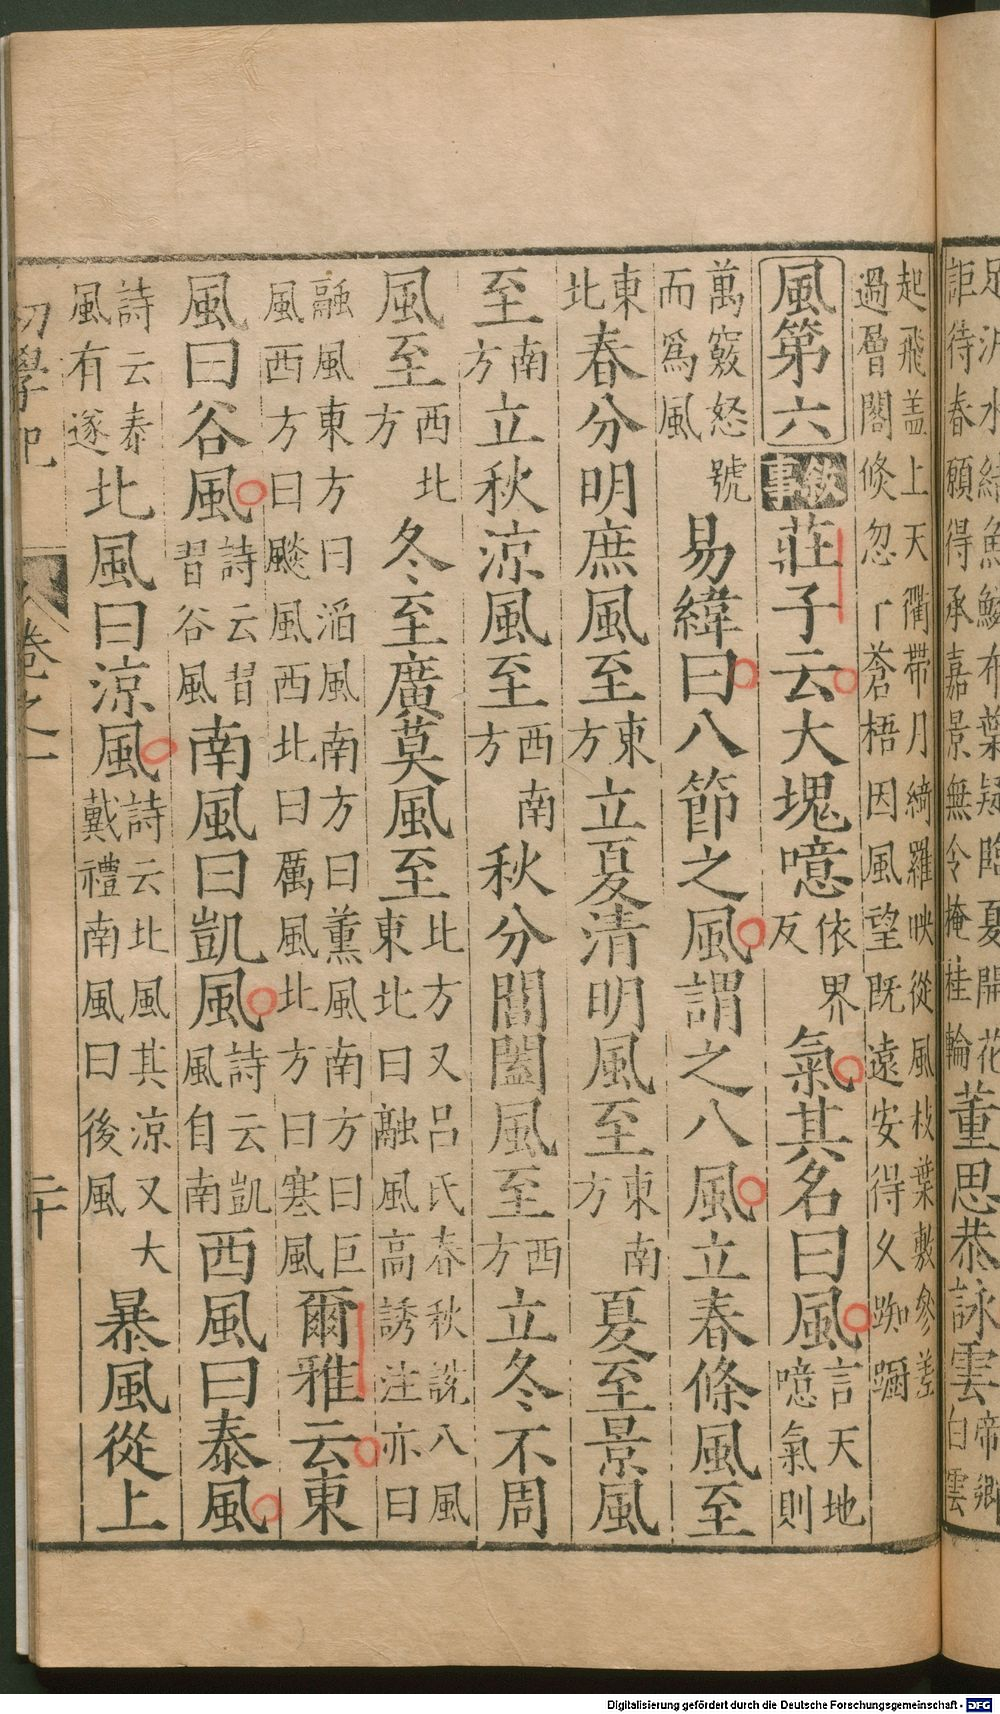 水緑魚鱗布葉疑臨夏開花
詎待春願得承嘉景無令掩桂輪董思恭詠雲帝鄉白雲
起飛盖上天衢帶月綺羅映從風枝葉敷參差過層閣倏忽蒼梧因風望既遠安得久踟躕
風第六敘事莊子云大塊噫依界反氣其名曰風言天地噫氣則
萬竅怒號而爲風易緯曰八節之風謂之八風立春條風至
東北春分明庶風至東方立夏清明風至東南方夏至景風
至南方立秋涼風至西南方秋分閶闔風至西方立冬不周
風至西北方冬至廣莫風至北方又呂氏春秋說八風東北曰融風高誘注亦曰
融風東方曰滔風南方曰薰風南方曰巨風西方曰飈風西北曰厲風北方曰寒風爾雅云東
風曰谷風詩云習習谷風南風曰凱風詩云凱風自南西風曰泰風
詩云泰風有遂北風曰涼風詩云北風其涼又大戴禮南風曰後風暴風從上
初學記 卷之一 二十
Digitalisierung gefördert durch die Deutsche Forschungsgemeinschaft - DFG